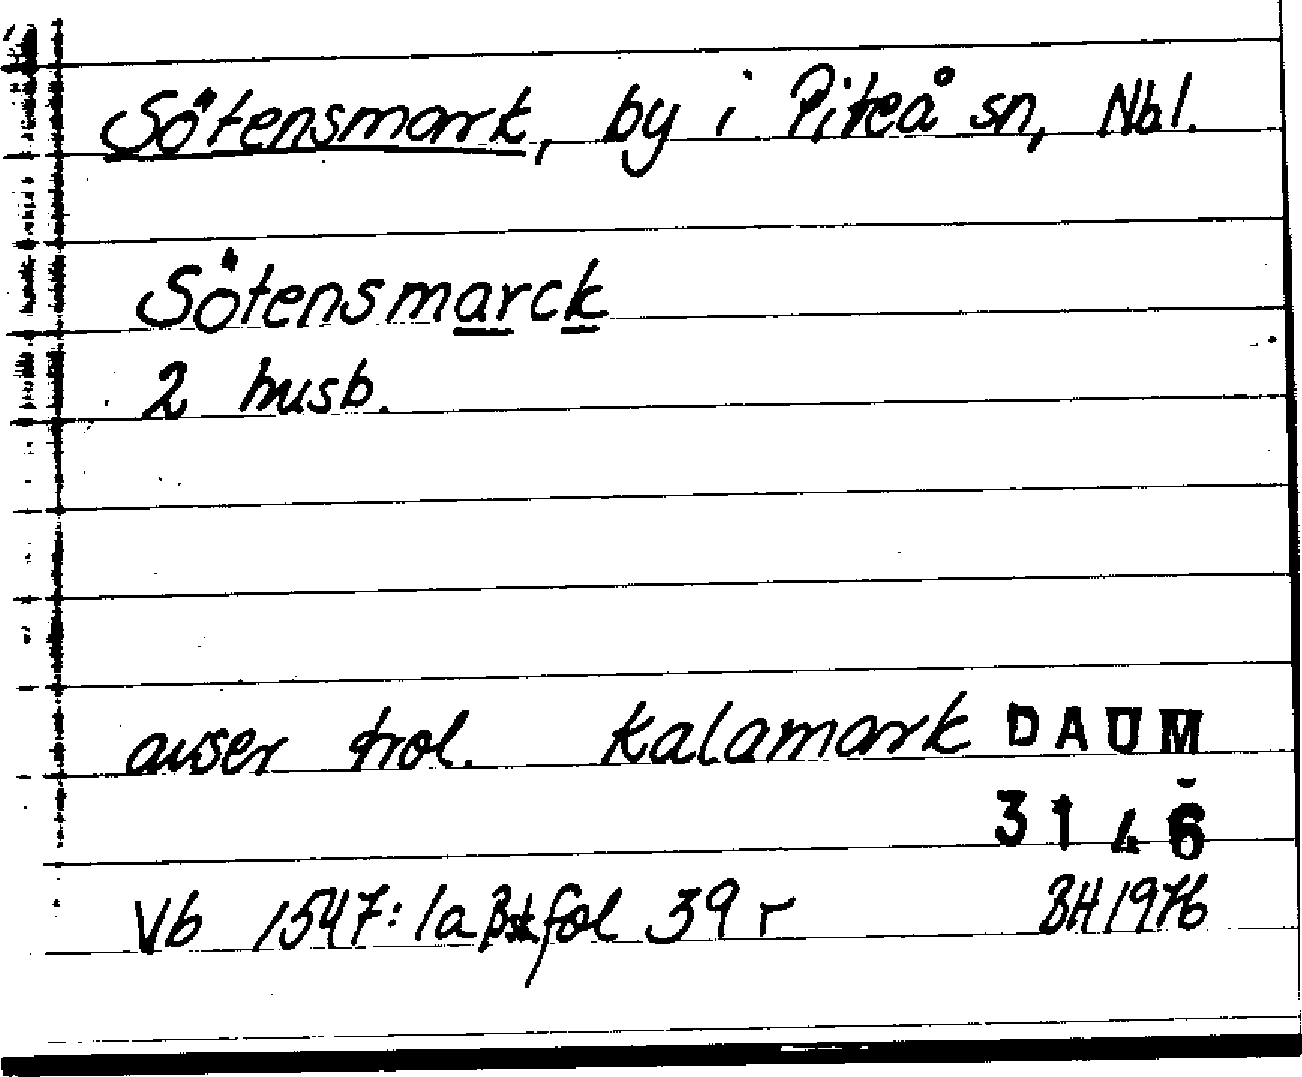 Sötensmark, by i Piteå sn, Nbl.
Sötensmarck
2 husb.
avser trol. Kalamark DAUM
3146
Vb 1547:1a Bskfol 39 r BH 1976